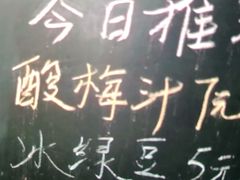 今日推
酸梅汁7元
冰绿豆5元